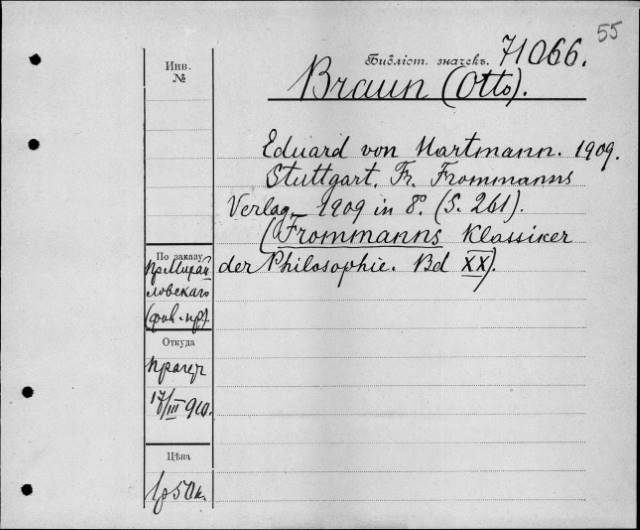 55
Библіот. значекъ. 71066.
Braun (Otto).
Инв.
№
Eduard von Hartmann. 1909.
Stuttgart, Fr. Frommanns
Verlag, 1909 in 8°. (S. 261).
(Frommanns Klassiker
der Philosophie. Bd XX).
По заказу
ловскаго
Откуда
17/III 910.
Цѣна
1р 50к.